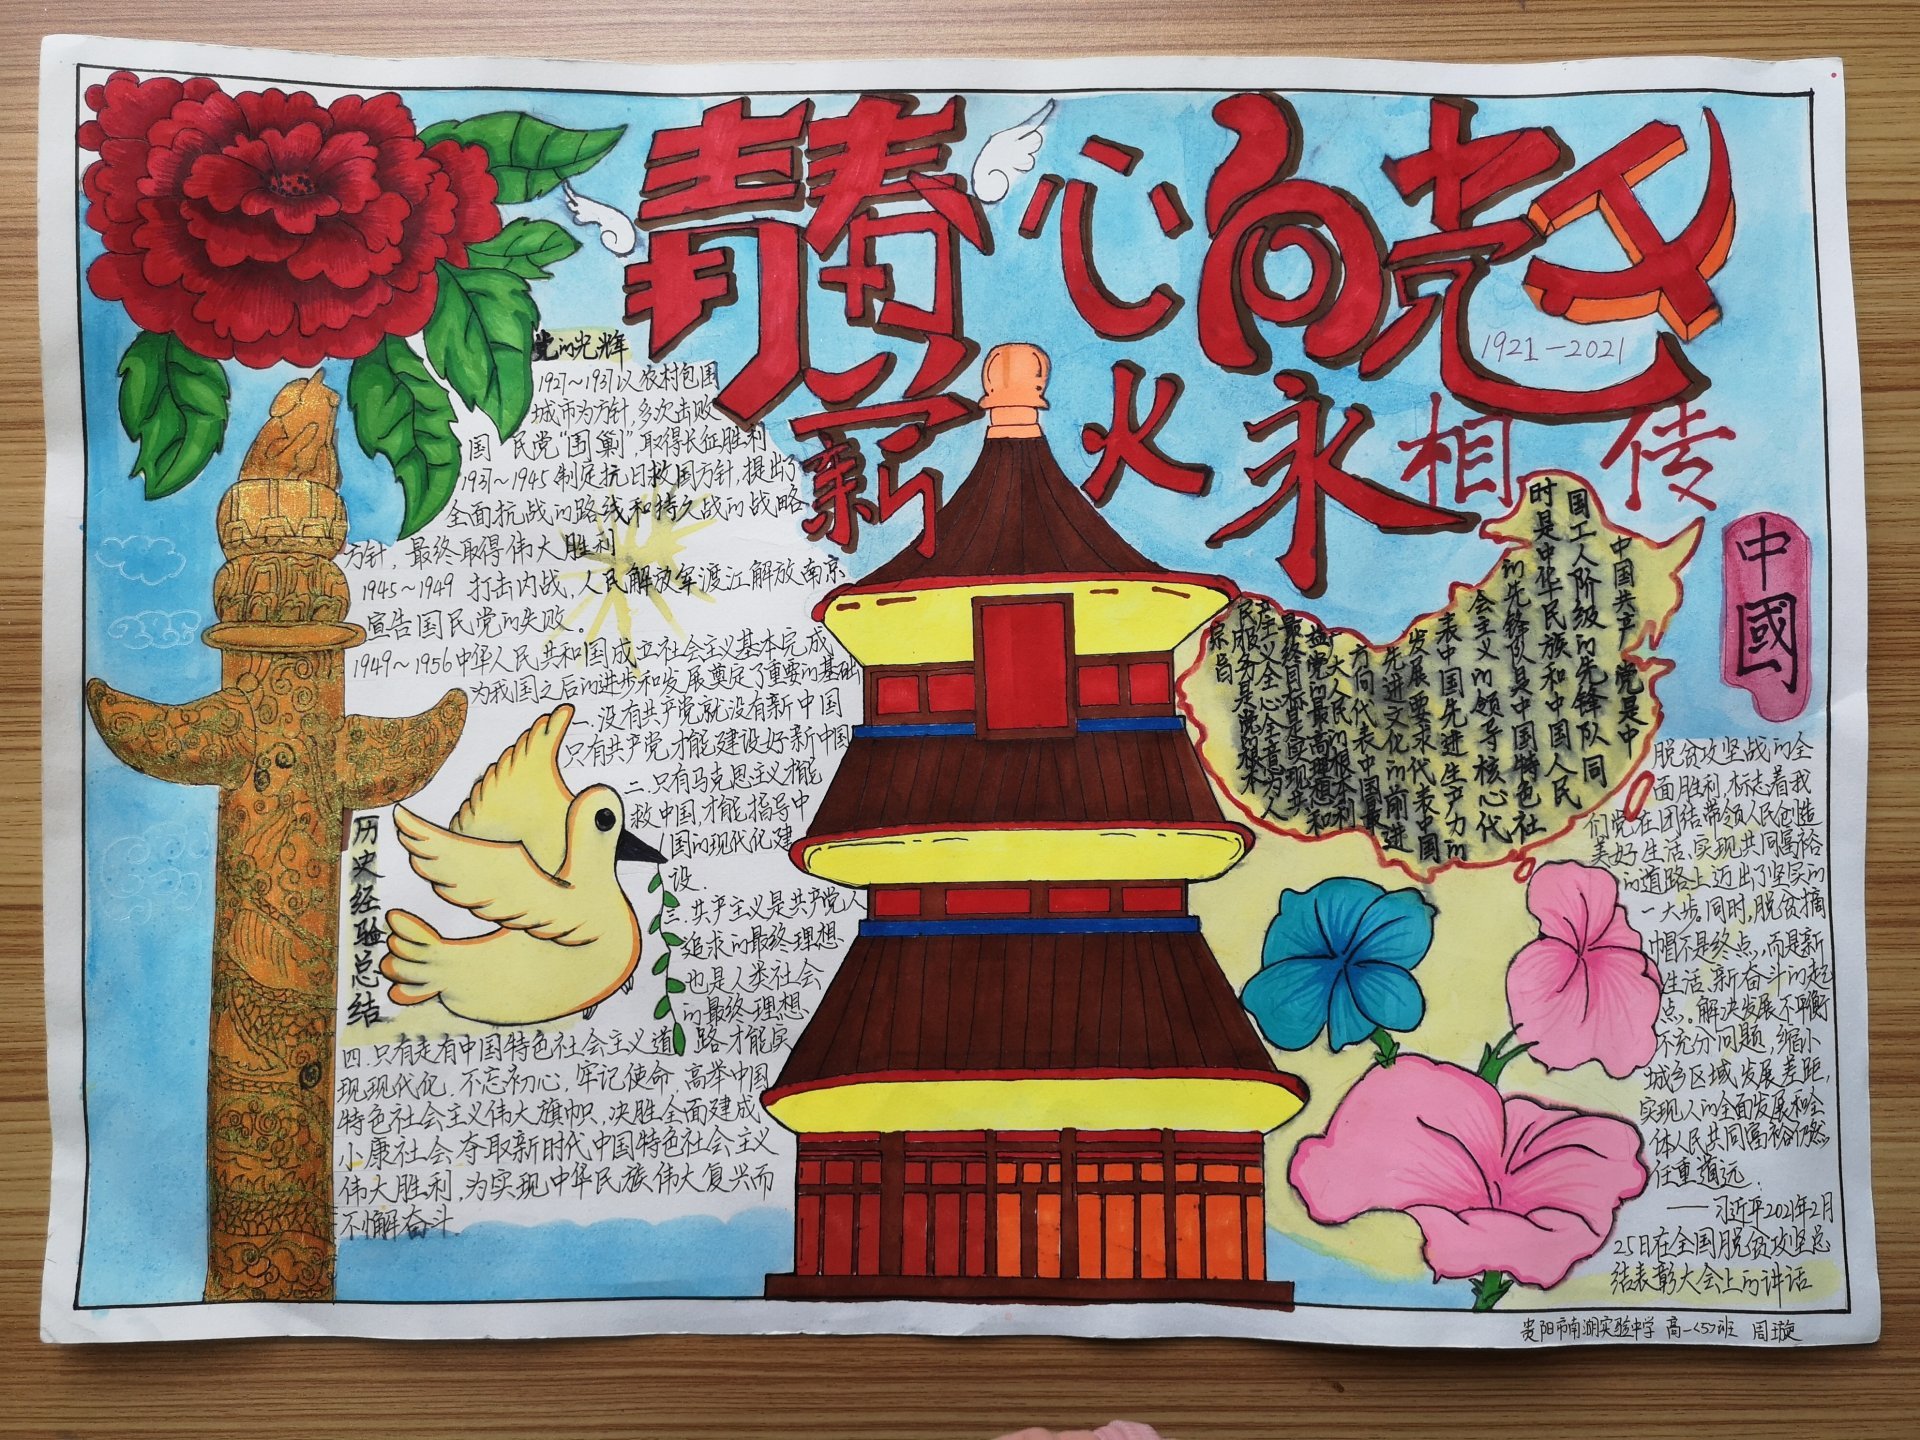 青春心向党
1921—2021
薪火永相传
党的光辉
1927~1937以农村包围
城市为方针,多次击败
国 民党"围剿",取得长征胜利
1937~1945制定抗日救国方针,提出了
全面抗战的路线和持久战的战略
方针,最终取得伟大胜利
1945~1949 打击内战,人民解放军渡江解放南京
宣告国民党的失败。
1949~1956中华人民共和国成立社会主义基本完成
为我国之后的进步和发展奠定了重要的基础
一.没有共产党就没有新中国
只有共产党才能建设好新中国
二.只有马克思主义才能
救中国,才能指导中
国的现代化建
设.
三.共产主义是共产党人
追求的最终理想
也是人类社会
的最终理想
历史经验总结
四.只有走有中国特色社会主义道路才能实
现现代化.不忘初心.牢记使命.高举中国
特色社会主义伟大旗帜.决胜全面建成
小康社会夺取新时代中国特色社会主义
伟大胜利,为实现中华民族伟大复兴而
不懈奋斗.
中国共产党是中
国工人阶级的先锋队同
时是中华民族和中国人民
的先锋队具中国特色社
会主义的领导核心代
表中国先进生产力的
发展要求代表中国
先进文化的前进
方向代表中国最
广大人民的根本利
益党的最高理想和
最终目标是实现共
产主义全心全意为人
民服务是党根本
宗旨
中國
脱贫攻坚战的全
面胜利,标志着我
们党在团结带领人民创造
美好生活、实现共同富裕
的道路上迈出了坚实的
一大步。同时,脱贫摘
帽不是终点,而是新
生活、新奋斗的起
点。解决发展不平衡
不充分问题,缩小
城乡区域发展差距,
实现人的全面发展和全
体人民共同富裕仍然
任重道远.
——习近平2021年2月
25日在全国脱贫攻坚总
结表彰大会上的讲话
贵阳市南湖实验中学 高一<5>班 周璇